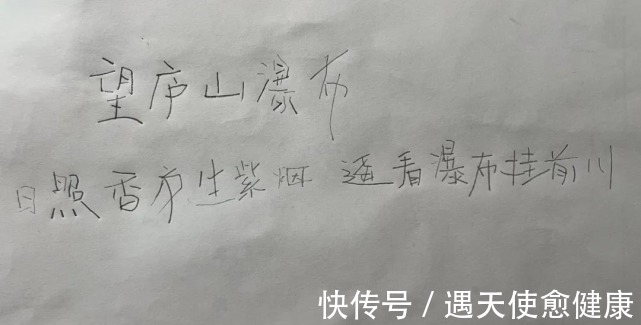 望庐山瀑布
日照香庐生紫烟 遥看瀑布挂前川
快传号 / 遇天使愈健康